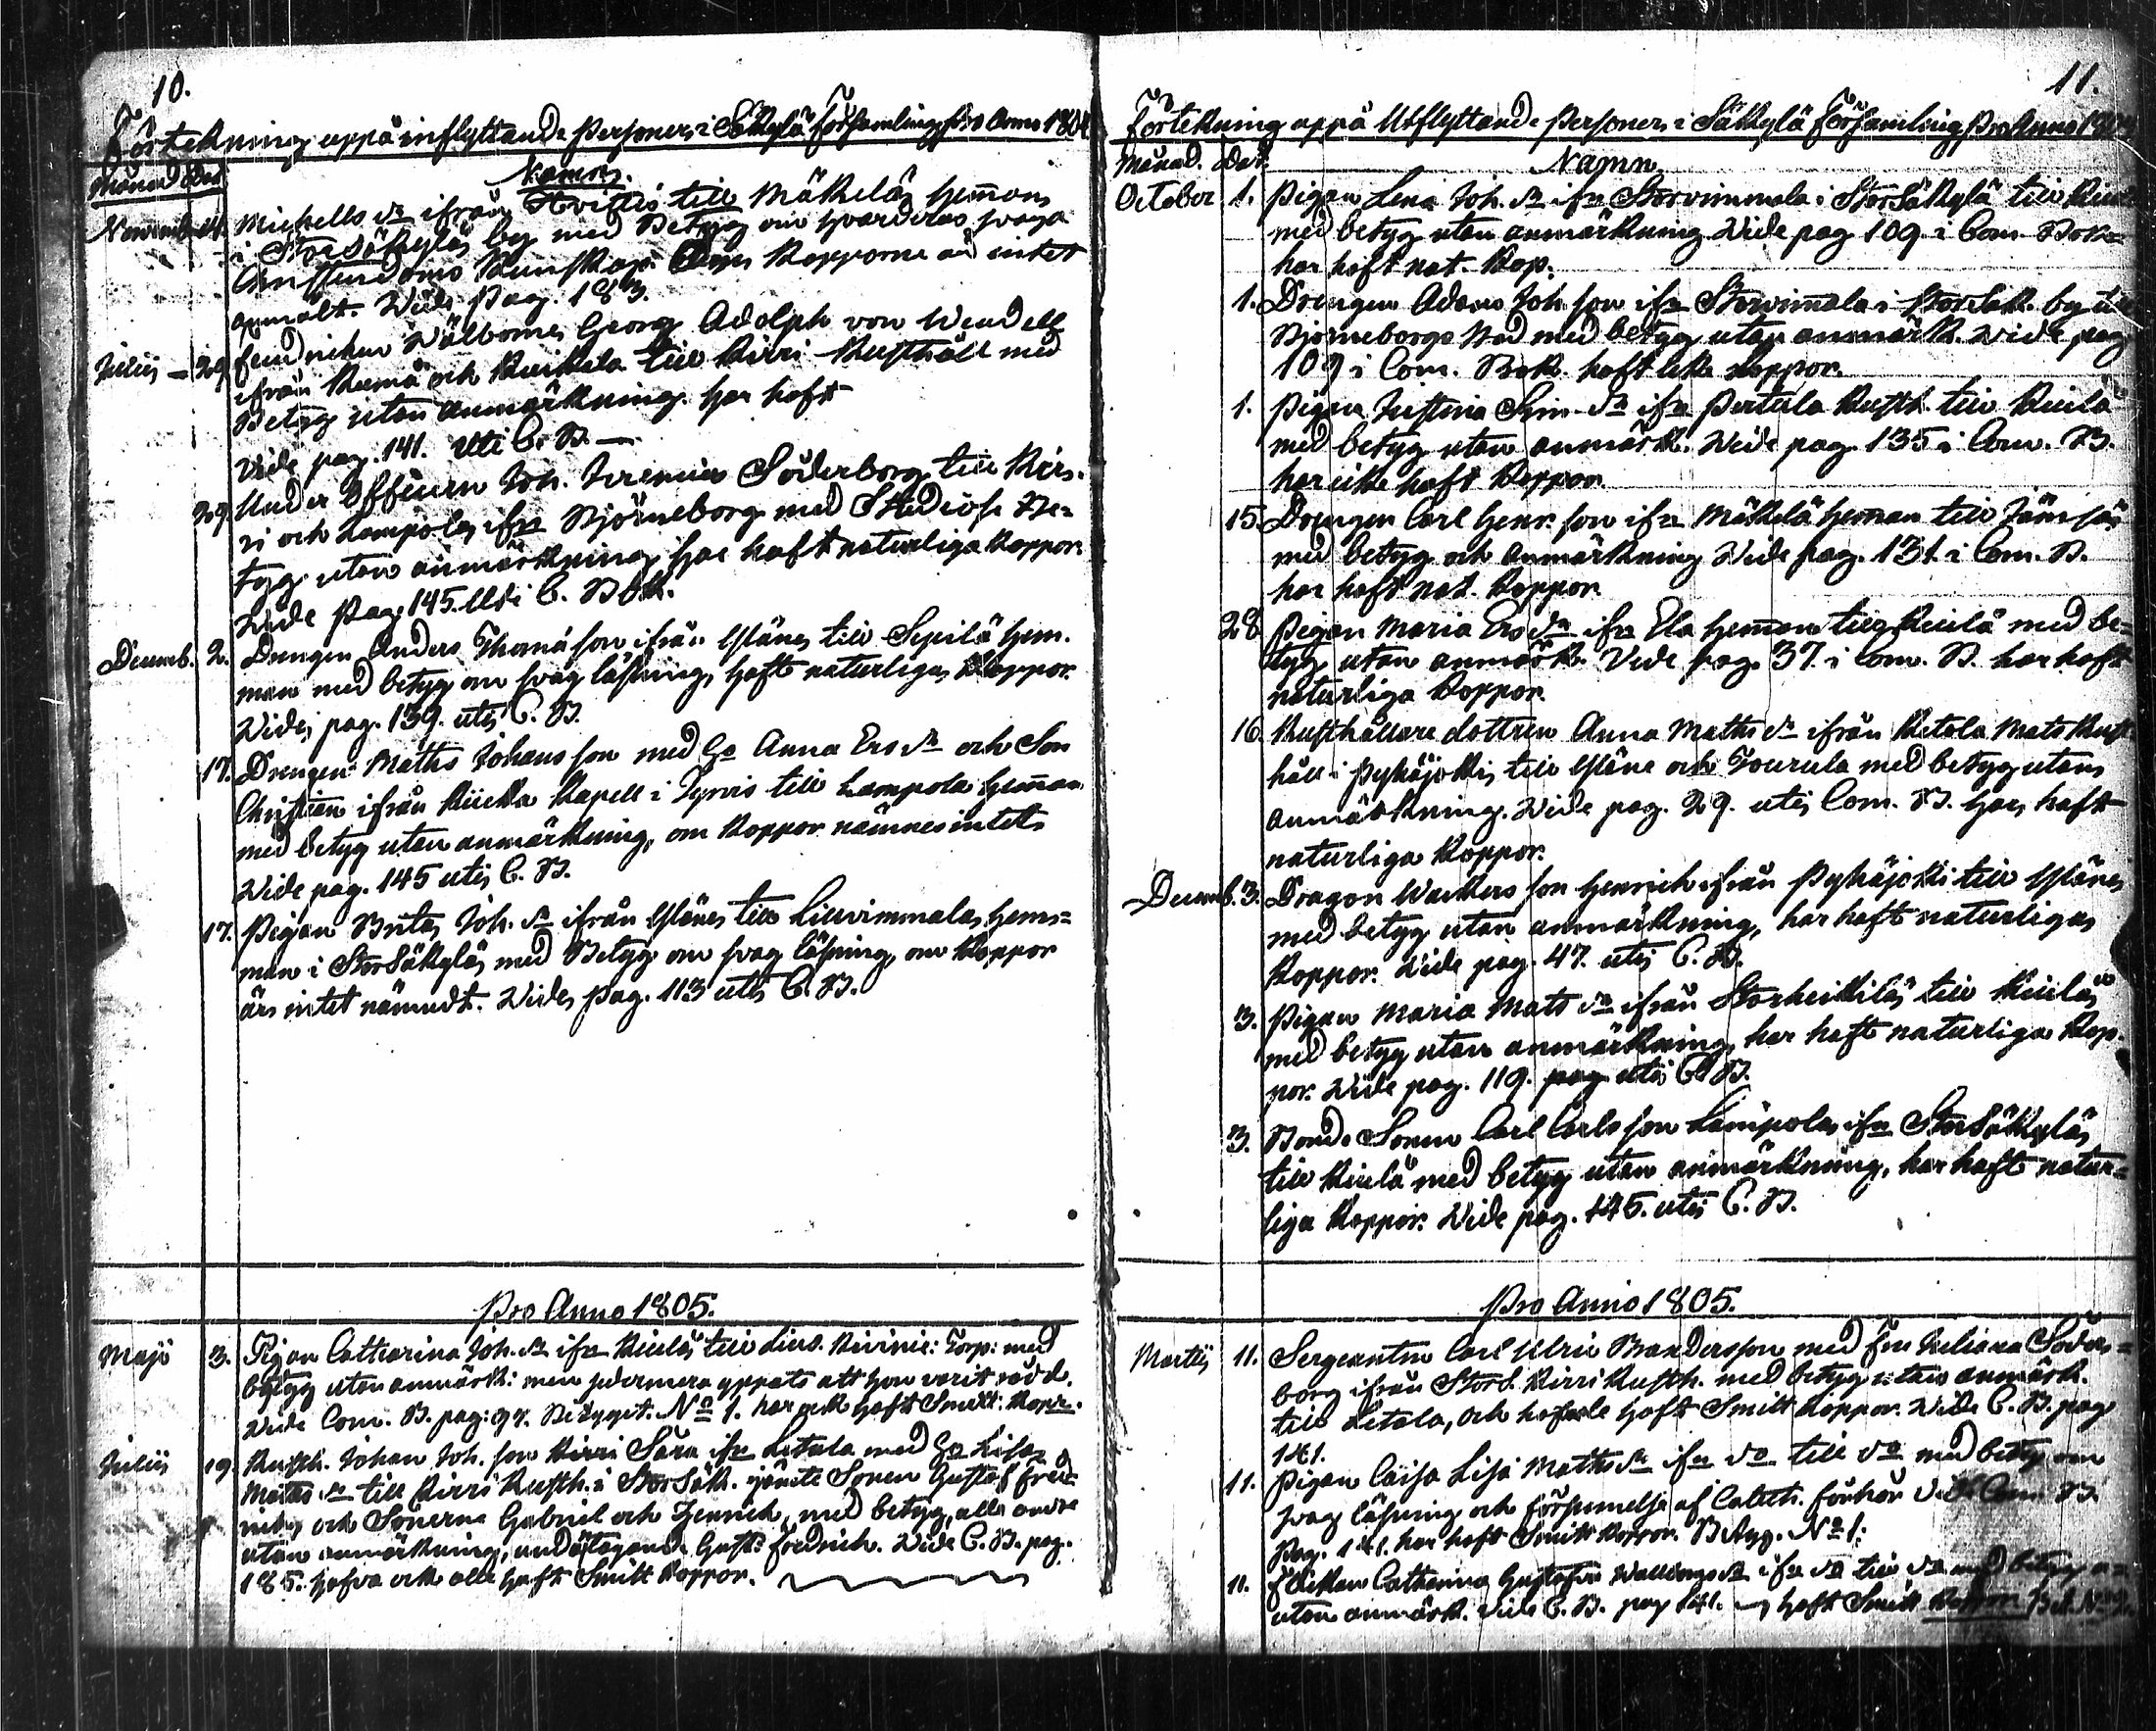 10.
Förtekning uppå inflyttande Personer i Säkylä Församling Pro Anno 1804
Månad Dat. Namn.
Novemb. Michells dr ifrån Hvittis till Mäkelä Hemman
i Storsäkylä by med Betyg om hvarderas svaga
Christendoms kunskap. Om Kopporne är intet
anmält. Vide Pag. 183.
Julii 29. Fendricken Välborne Georg Adolph von Wendell
ifrån Kumå och Kurkela till Kirri Rusthåll med
Betyg utan anmärkning. har haft
Vide pag. 141. Uti C. B.
29. Under Officeren Joh. Jeremias Söderborg till Kir-
ri och Lampola ifrn Björneborg med Be-
tyg utan anmärkning har haft naturliga Koppor.
Vide Pag. 145. Uti C. Bok.
Decemb. 2. Drengen Anders Thomasson ifrån Yläne till Seppilä Hem-
man med betyg om svag läsning, haft naturliga Koppor.
Vide pag. 139. uti C. B.
17. Drengen Matths Johansson med Ho Anna Ersdr och Son
Christian ifrån Kiicka Kapell i Tyrvis till Lampola Hemman
med betyg utan anmärkning, om Koppor nämnes intet.
Vide pag. 145 uti C. B.
17. Pigan Brita Joh. dr ifrån Yläne till Lillvimmala Hem-
man i StorSäkylä med Betyg om svag läsning, om Koppor
är intet nämndt. Vide pag. 113 uti C. B.
Pro Anno 1805.
Maji 3. Pigan Catharina Joh. dr ifrn Kiulå till Torp: med
betyg utan anmärk: men sedermera yppats att hon varit
Vide Com. B. pag: 97. Betyget. No 1. har ock haft Smitt: Kopr.
Julii 19. Rusth. Johan Joh. son Kirri Sara ifrn Letala med Ho Lisa
Matts dr till Kirri Rusth. i StorSäk. jämte Sonen Gustaf Fred-
rich och Sönerna Gabriel och Henrich, med betyg, alla andre
utan anmärkning, undantagande Gust: Fredrich. Vide C. B. pag.
185. hafva ock alla haft Smitt Koppor.
11.
Förtekning uppå Utflyttande Personer i Säkylä Församling Pro Anno 1804
Månad. Dat. Namn
October 1. Pigan Lena Joh. dr ifrn Storvimmala i StorSäkylä till
med betyg utan anmärkning Vide pag 109 i Com Bok
har haft nat. Kop.
1. Drengen Adam Joh. son ifrn Storvimmala i StorSäk. by till
Björneborgs Stad med betyg utan anmärk. Vide pag
109 i Com. Bok. haft Koppor.
1. Pigan Justina Sim. dr ifrn Perttula Rusth. till Kiulå
med betyg utan anmärk. Vide pag. 135 i Com. B.
har icke haft Koppor.
15. Drengen Carl Henr. son ifrn Mäkelä Hemman till
med betyg och anmärkning Vide pag. 131. i Com. B.
har haft nat. Koppor.
28. Pigan Maria Ersdr ifrn Ela Hemman till Kiulå med be-
tyg utan anmärk. Vide pag. 37. i Com. B. har haft
naturliga Koppor.
16. Rusthållare dottren Anna Matths dr ifrån Ketola Mats Rust-
håll i Pyhäjoki till Yläne och Tourula med betyg utan
anmärkning. Vide pag. 29. uti Com. B. har haft
naturliga Koppor.
Decemb. 3. Dragon Wackers son Henrich ifrån Pyhäjoki till Yläne
med betyg utan anmärkning, har haft naturliga
Koppor. Vide pag. 47. uti C. B.
3. Pigan Maria Mats dr ifrån Storheikkilä till Kiulå
med betyg utan anmärkning, har haft naturliga Kop-
por. Vide pag. 119. pag uti C. B.
3. Bonde Sonen Carl Carlsson Lampola ifrn StorSäkylä
till Kiulå med betyg utan anmärkning, har haft natur-
liga Koppor. Vide pag. 145. uti C. B.
Pro Anno 1805.
Martii 11. Sergeanten Carl Ulric Brandersson med Fru Juliana Söder-
borg ifrån StorS. Kirri Rusth. med betyg utan anmärk.
till Letala, och haft Smitt Koppor. Vide C. B. pag
141.
11. Pigan Caisa Lisa Matths dr ifrn do till do med betyg om
svag läsning och försummelse af Catech. förhör Vide Com. B.
Pag. 141. har haft Smitt Koppor. Betyg. No 1.
11. Flickan Catharina Gustafva dr ifrn do till do med betyg
utan anmärk. Vide C. B. pag 141. haft Smitt Koppor Bet. No